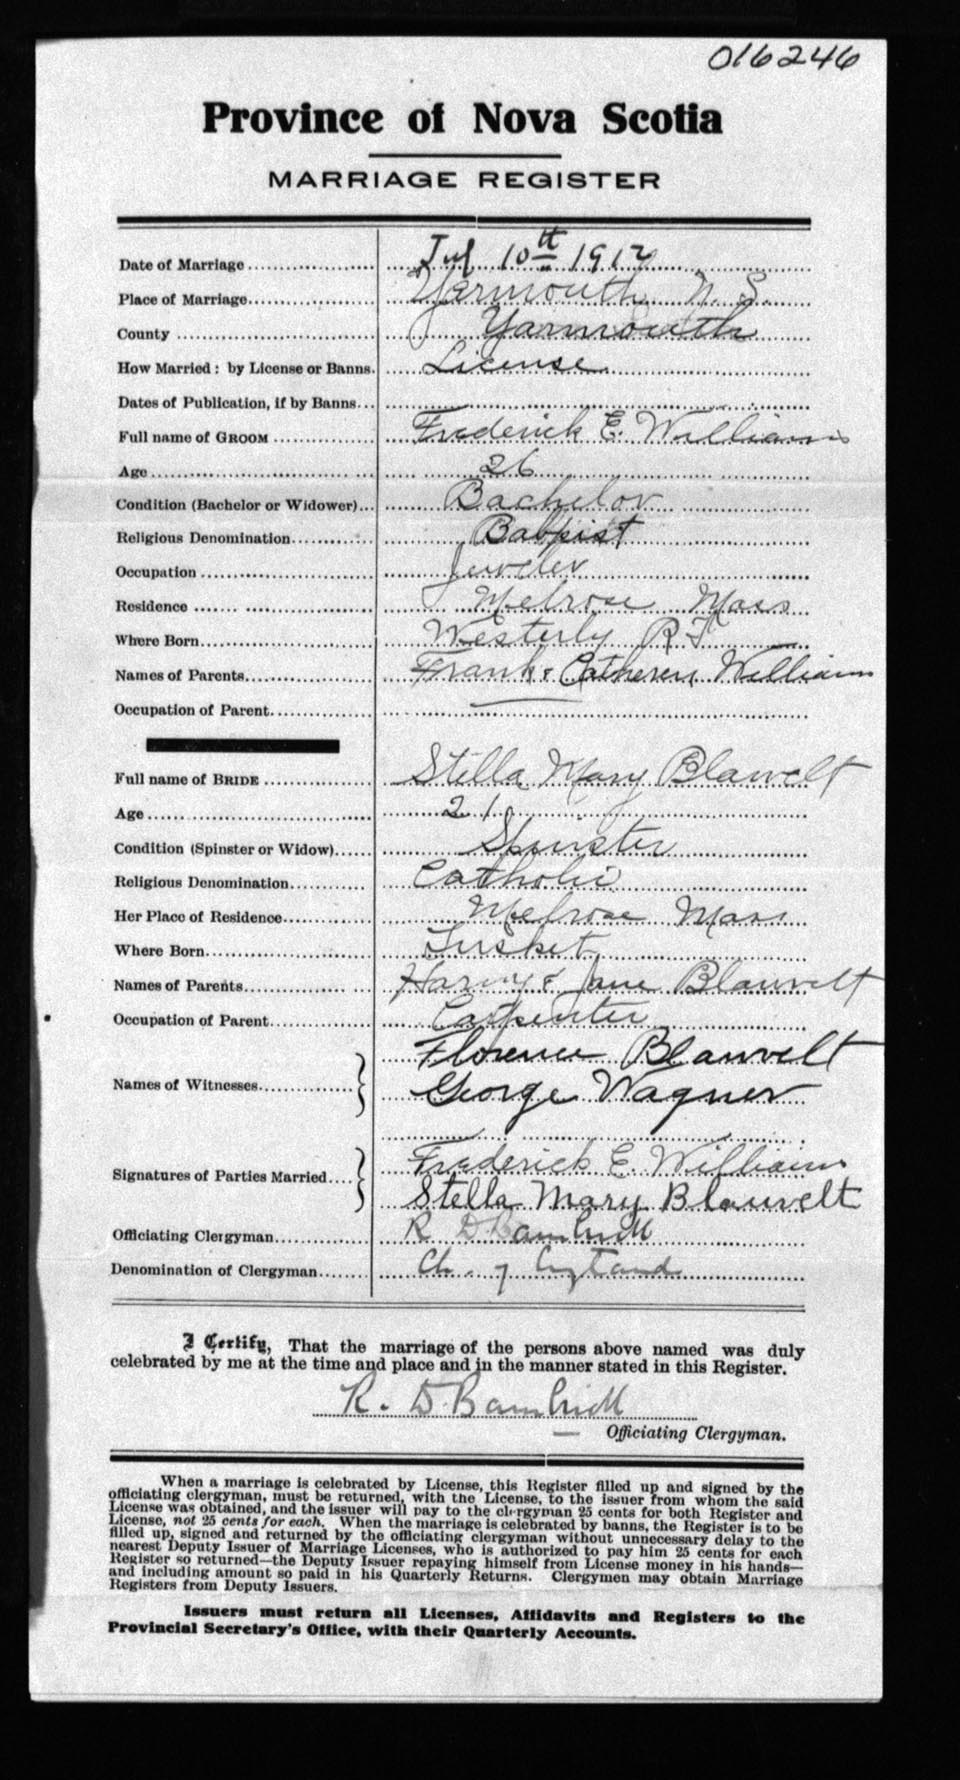 016246
Province of Nova Scotia
MARRIAGE REGISTER
Date of Marriage 10th 1912
Place of Marriage Yarmouth N. S.
County Yarmouth
How Married: by License or Banns. License.
Dates of Publication, if by Banns
Full name of GROOM Frederick E. Williams
Age 26
Condition (Bachelor or Widower) Bachelor
Religious Denomination Babpist
Occupation Jeweler
Residence Melrose Mass
Where Born Westerly R I
Names of Parents Frank & Catheren Williams
Occupation of Parent
Full name of BRIDE Stella Mary Blauvelt
Age 21
Condition (Spinster or Widow) Spinster
Religious Denomination Catholic
Her Place of Residence Melrose Mass
Where Born Tusket
Names of Parents Harvy & Jane Blauvelt
Occupation of Parent Carpenter
Florence Blauvelt
Names of Witnesses George Wagner
Frederick E. Williams
Signatures of Parties Married
Stella Mary Blauvelt
Officiating Clergyman R D
Denomination of Clergyman Ch. of England
I Certify, That the marriage of the persons above named was duly
celebrated by me at the time and place and in the manner stated in this Register.
R. D.
Officiating Clergyman.
When a marriage is celebrated by License, this Register filled up and signed by the
officiating clergyman, must be returned, with the License, to the issuer from whom the said
License was obtained, and the issuer will pay to the clergyman 25 cents for both Register and
License, not 25 cents for each. When the marriage is celebrated by banns, the Register is to be
filled up, signed and returned by the officiating clergyman without unnecessary delay to the
nearest Deputy Issuer of Marriage Licenses, who is authorized to pay him 25 cents for each
Register so returned—the Deputy Issuer repaying himself from License money in his hands—
and including amount so paid in his Quarterly Returns. Clergymen may obtain Marriage
Registers from Deputy Issuers.
Issuers must return all Licenses, Affidavits and Registers to the
Provincial Secretary's Office, with their Quarterly Accounts.